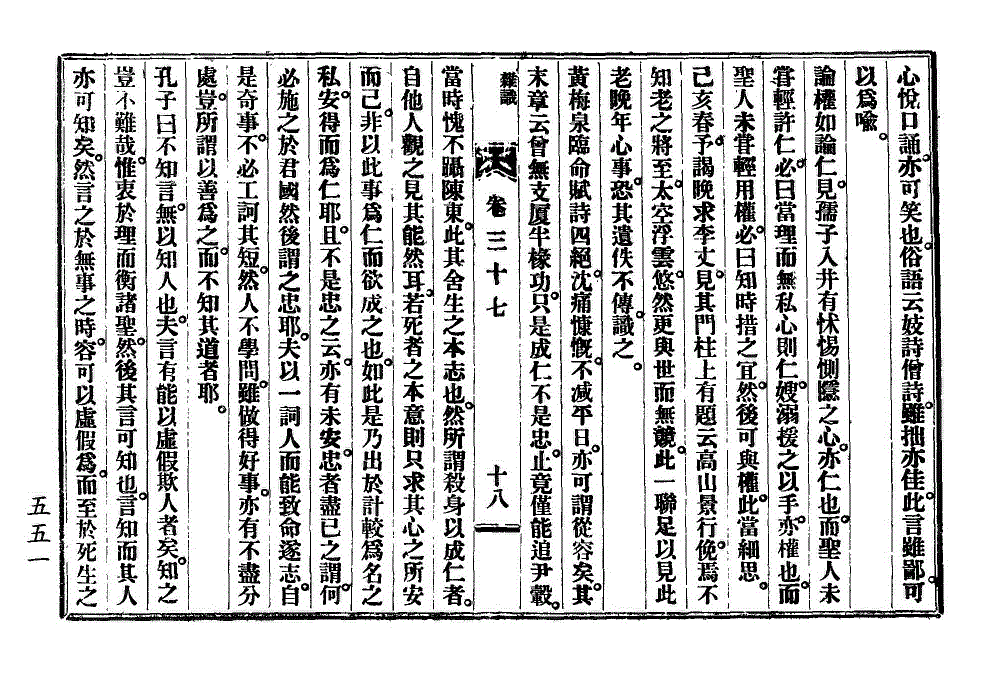 心悅口誦。亦可笑也。俗語云妓詩僧詩。雖拙亦佳。此言雖鄙。可
以爲喩。
論權如論仁。見孺子入井有怵惕惻隱之心。亦仁也。而聖人未
甞輕許仁。必曰當理而無私心則仁。嫂溺援之以手。亦權也。而
聖人未甞輕用權。必曰知時措之宜。然後可與權。此當細思。
己亥春。予謁晩求李丈。見其門柱上有題云高山景行。俛焉不
知老之將至。太空浮雲。悠然更與世而無競。此一聯足以見此
老晩年心事。恐其遺佚不傳。識之。
黃梅泉臨命賦詩四絕。沈痛慷慨。不减平日。亦可謂從容矣。其
末章云曾無支厦半椽功。只是成仁不是忠。止竟僅能追尹糓。
雜識
卷三十七
十八
當時愧不躡陳東。此其舍生之本志也。然所謂殺身以成仁者。
自他人觀之。見其能然耳。若死者之本意則只求其心之所安
而已。非以此事爲仁而欲成之也。如此是乃出於計較爲名之
私。安得而爲仁耶。且不是忠之云。亦有未安。忠者盡己之謂。何
必施之於君國然後謂之忠耶。夫以一詞人而能致命遂志。自
是奇事。不必工訶其短。然人不學問。雖做得好事。亦有不盡分
處。豈所謂以善爲之。而不知其道者耶。
孔子曰不知言。無以知人也。夫言有能以虛假欺人者矣。知之
豈不難哉。惟衷於理而衡諸聖。然後其言可知也。言知而其人
亦可知矣。然言之於無事之時。容可以虛假爲。而至於死生之
五五一